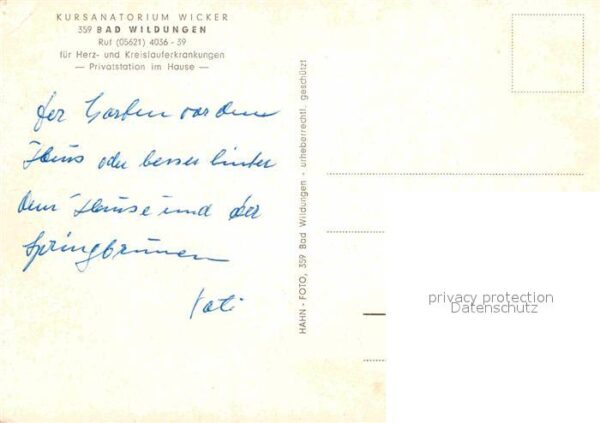 KURSANATORIUM WICKER
359 BAD WILDUNGEN
Ruf (05621) 4036 - 39
für Herz- und Kreislauferkrankungen
— Privatstation im Hause —
der Garten vor dem
Haus oder besser hinter
dem Hause und der
Springbrunnen
Vati
HAHN - FOTO, 359 Bad Wildungen - urheberrechtl. geschützt
privacy protection
Datenschutz